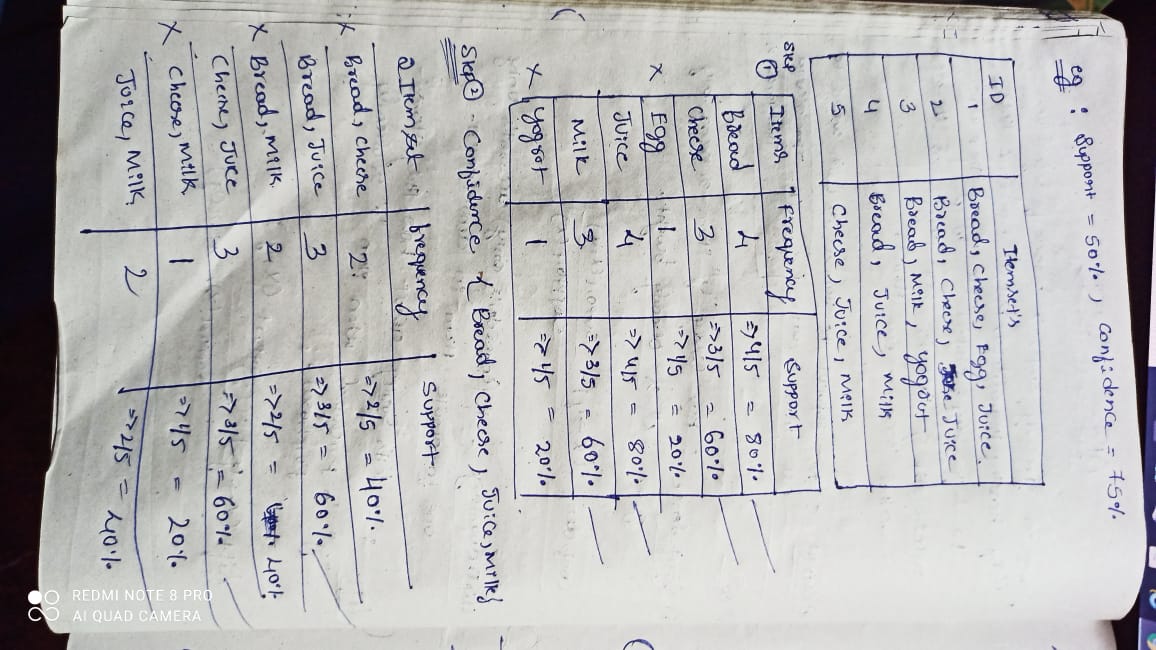 eg : Support = 50%, Confidence = 75%
ID Itemset's
1 Bread, Cheese, Egg, Juice.
2 Bread, Cheese, Juice
3 Bread, Milk, Yogort
4 Bread, Juice, Milk
5 Cheese, Juice, Milk
Step ① Items Frequency Support
Bread 4 => 4/5 = 80%
Cheese 3 => 3/5 = 60%
X Egg 1 => 1/5 = 20%
Juice 4 => 4/5 = 80%
Milk 3 => 3/5 = 60%
X Yogort 1 => 1/5 = 20%
Step ② - Confidence { Bread, Cheese, Juice, Milk}
2 Itemset frequency Support
X Bread, Cheese 2 => 2/5 = 40%
Bread, Juice 3 => 3/5 = 60%
X Bread, Milk 2 => 2/5 = 40%
Cheese, Juce 3 => 3/5 = 60%
X Cheese, Milk 1 => 1/5 = 20%
Juice, Milk 2 => 2/5 = 40%
REDMI NOTE 8 PRO
AI QUAD CAMERA